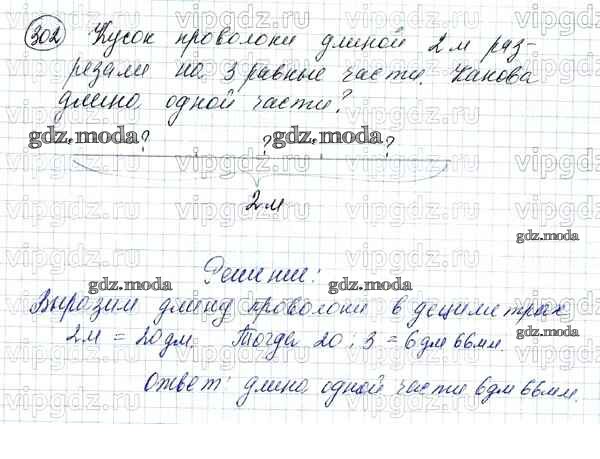 302 Кусок проволоки длиной 2 м раз-
резали на 3 равные части. Какова
длина одной части?
gdz.moda ? ? gdz.moda ?
2 м
gdz.moda
Решение:
gdz.moda gdz.moda
Выразим длину проволоки в дециметрах
2 м = 20 дм. Тогда 20 : 3 = 6 дм 66 мм.
gdz.moda
Ответ: длина одной части 6 дм 66 мм.
gdz.moda gdz.moda
vipgdz.ru